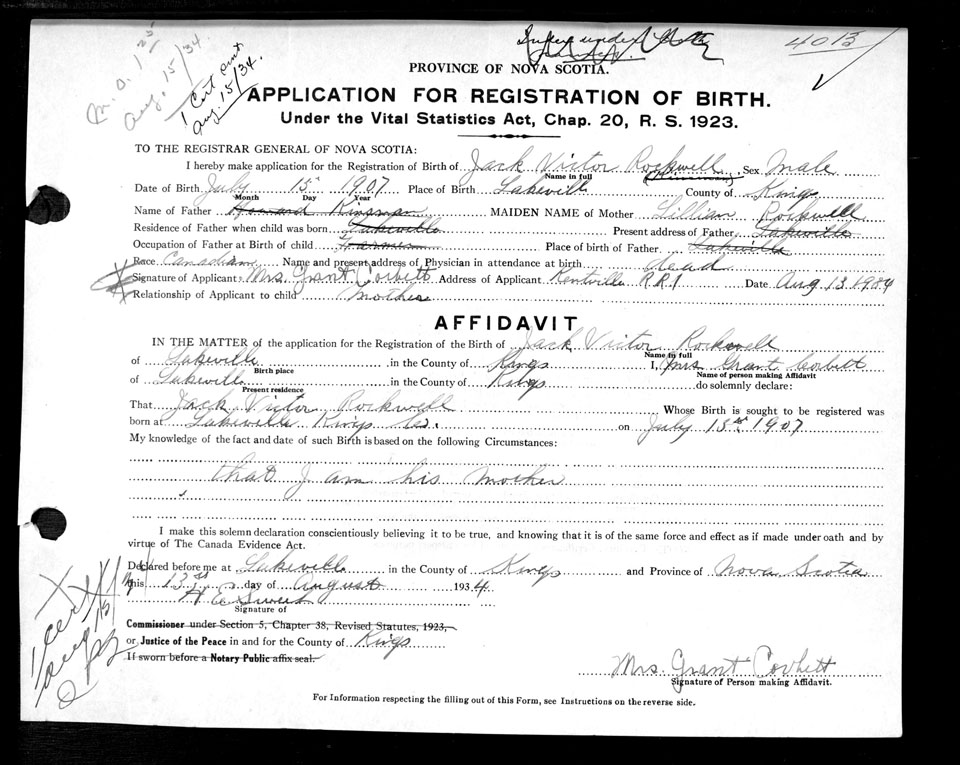 4013
Aug. 15/34
1 Cert sent
Aug. 15/34.
PROVINCE OF NOVA SCOTIA.
APPLICATION FOR REGISTRATION OF BIRTH.
Under the Vital Statistics Act, Chap. 20, R. S. 1923.
TO THE REGISTRAR GENERAL OF NOVA SCOTIA:
I hereby make application for the Registration of Birth of Jack Victor Rockwell, Sex Male
Name in full
Date of Birth July 15 1907 Place of Birth Lakeville County of Kings
Month Day Year
Name of Father Howard Kinsman MAIDEN NAME of Mother Lillian Rockwell
Residence of Father when child was born Lakeville Present address of Father Lakeville
Occupation of Father at Birth of child Farmer Place of birth of Father Lakeville
Race Canadian Name and present address of Physician in attendance at birth dead
Signature of Applicant Mrs. Grant Corbett Address of Applicant Kentville R R 1 Date Aug 13 1934
Relationship of Applicant to child mother
AFFIDAVIT
IN THE MATTER of the application for the Registration of the Birth of Jack Victor Rockwell
Name in full
of Lakeville in the County of Kings I, Mrs Grant Corbett
Birth place Name of person making Affidavit
of Lakeville in the County of Kings do solemnly declare:
Present residence
That Jack Victor Rockwell Whose Birth is sought to be registered was
born at Lakeville Kings Co. on July 15 1907
My knowledge of the fact and date of such Birth is based on the following Circumstances:
that I am his Mother
I make this solemn declaration conscientiously believing it to be true, and knowing that it is of the same force and effect as if made under oath and by
virtue of The Canada Evidence Act.
Declared before me at Lakeville in the County of Kings and Province of Nova Scotia
this 13 day of August 1934
Signature of
Commissioner under Section 5, Chapter 38, Revised Statutes, 1923,
or Justice of the Peace in and for the County of Kings
If sworn before a Notary Public affix seal.
Mrs. Grant Corbett
Signature of Person making Affidavit.
For Information respecting the filling out of this Form, see Instructions on the reverse side.
1 cert